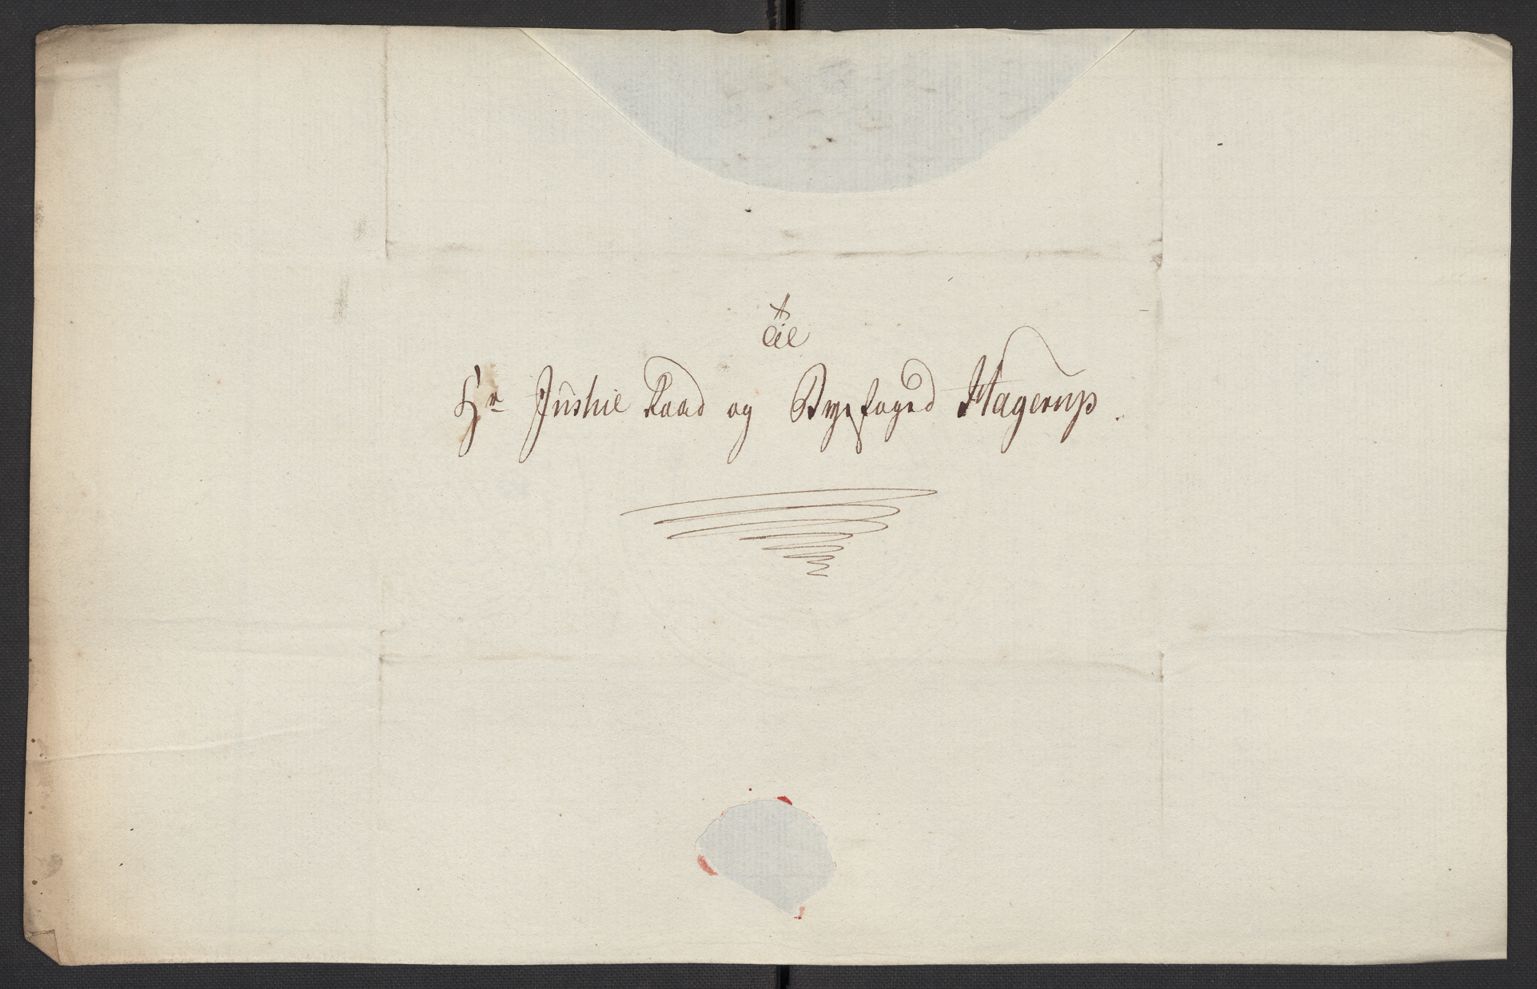 Til
Hr Justice Raad og Byefoged Hagerup.